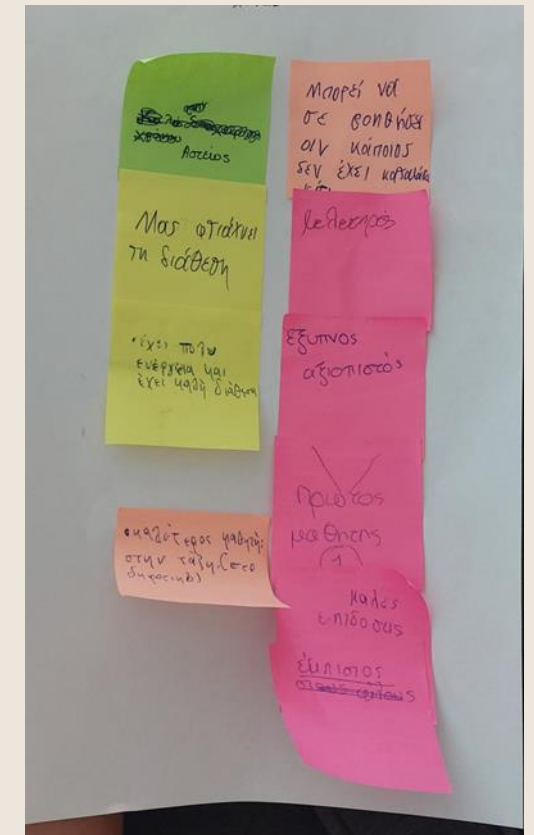 Αστείος
Μας φτιάχνει
τη διάθεση
•έχει πολυ
ενέργεια και
έχει καλή διάθεση
•καλύτερος μαθητής
στην τάξη (στο
δημοτικό)
Μπορεί να
σε βοηθήσει
αν κάποιος
δεν έχει καταλάβει
κάτι
μελετηρός
έξυπνος
αξιοπιστός
πρώτος
μαθητης
1
καλές
επιδοσεις
έμπιστος